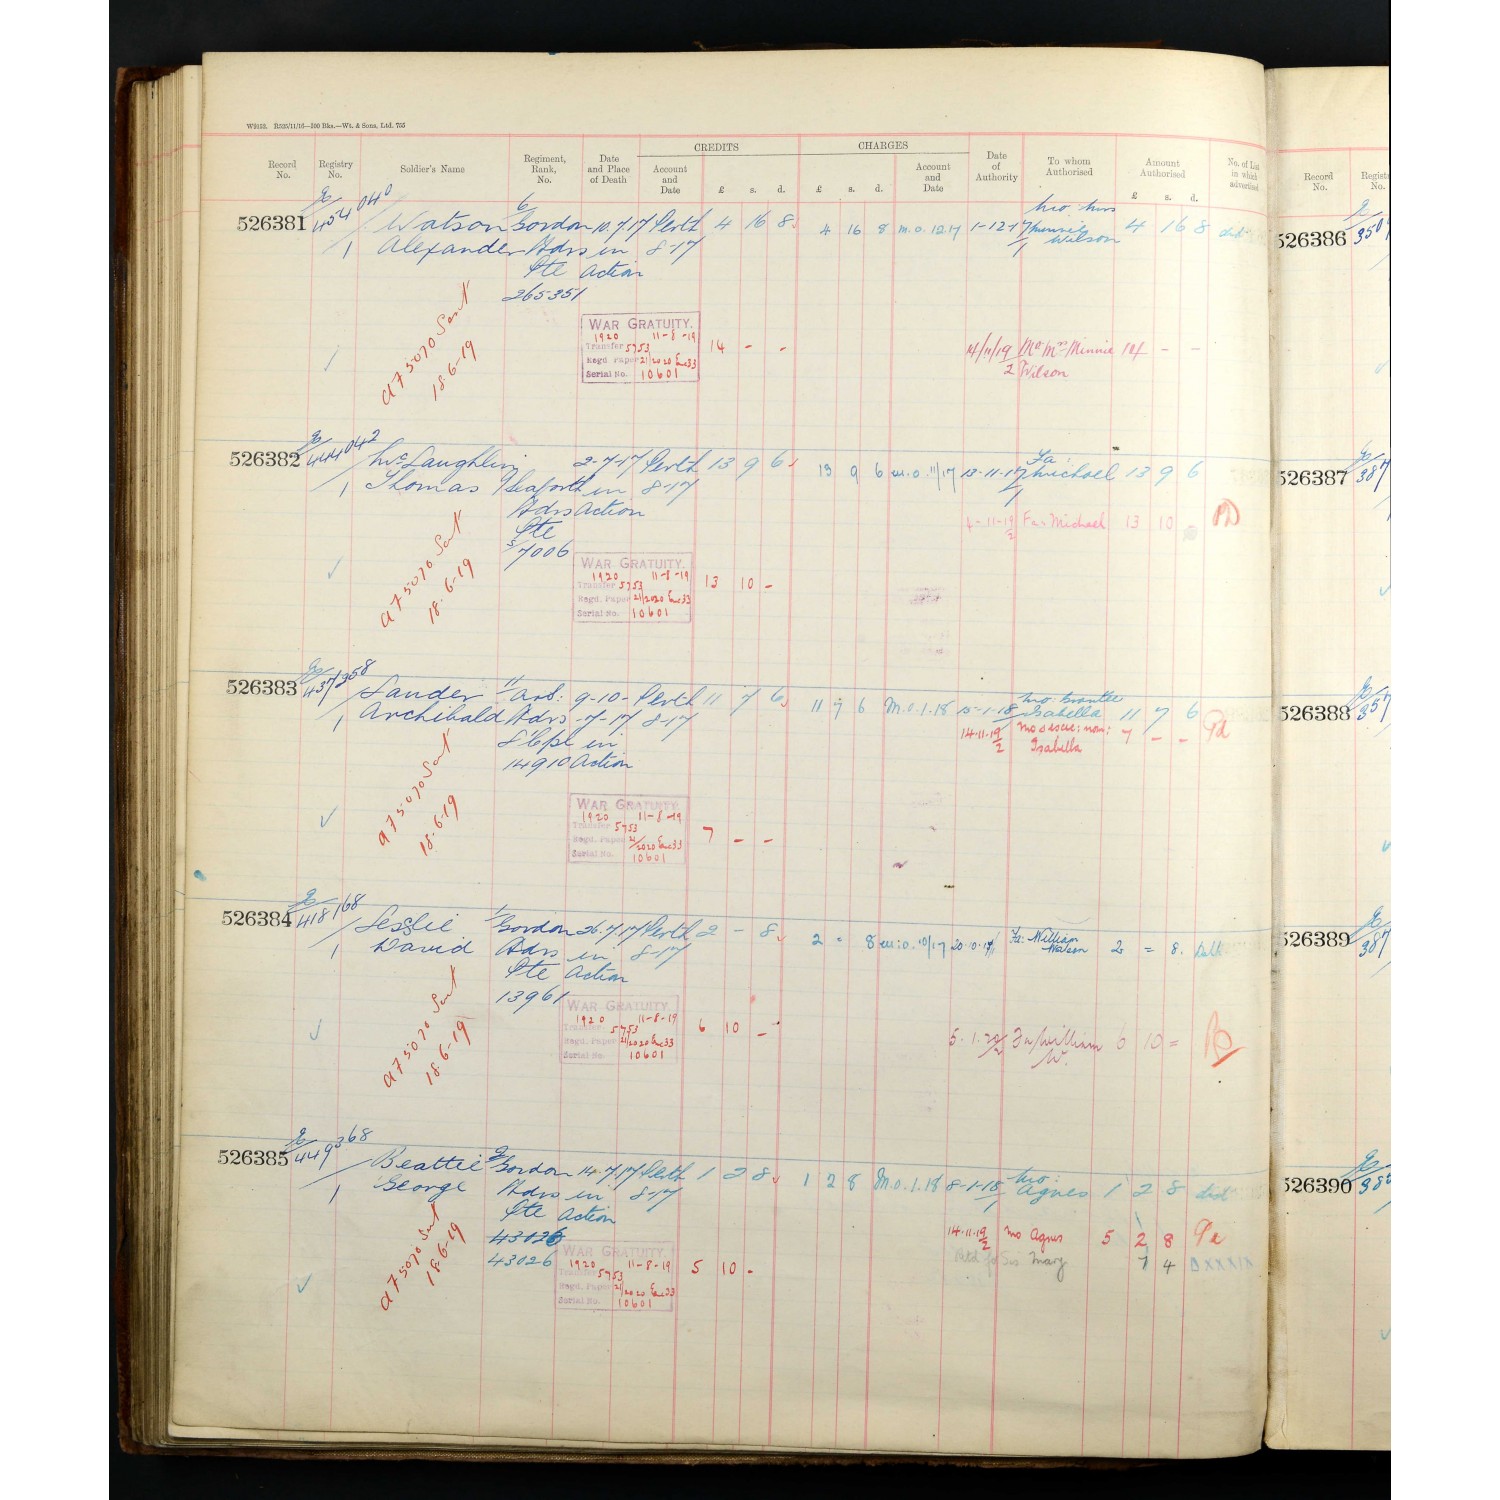 W9133. R525/11/16—500 Bks.—Wt. & Sons, Ltd. 755
CREDITS CHARGES
Record No. Registry No. Soldier's Name Regiment, Rank, No. Date and Place of Death Account and Date £ s. d. £ s. d. Account and Date Date of Authority To whom Authorised Amount Authorised £ s. d. No. of List in which advertised Record No.
526381 454040 Watson 6/ Gordon 10.7.17 Perth 4 16 8 4 16 8 M.O. 12.17 1-12-17 Mo: Mrs 4 16 8 did
1 Alexander Hdrs in 8-17 1 Minnie Wilson
Pte Action
265351
a75070 Sent
18.6.19
WAR GRATUITY.
1920 11-8-19
Transfer 5753
Regd. Paper 21/2020 Enc33
Serial No. 10601
14 - -
14/11/19 Mo Mrs Minnie 14 - -
2 Wilson
526382 444042 McLaughlin 2-7-17 Perth 13 9 6 13 9 6 M.O. 11/17 13-11-17 Fa: Michael 13 9 6
1 Thomas Seaforth in 8-17 1
Hdrs Action
Pte
S/7006
4-11-19 2 Fa. Michael 13 10
a75070 Sent
18.6.19
WAR GRATUITY.
1920 11-8-19
Transfer 5753
Regd. Paper 21/2020 Enc33
Serial No. 10601
13 10 -
526383 437358 Lauder 11/ A&S: 9-10- Perth 11 7 6 11 7 6 M.O. 1.18 15-1-18 Isabella 11 7 6
1 Archibald Hdrs -7-17 8-17
L/Cpl in
14910 Action
14.11.19 2 Isabella 7 - - Pd
a75070 Sent
18.6.19
WAR GRATUITY.
1920 11-8-19
Transfer 5753
Regd. Paper 21/2020 Enc33
Serial No. 10601
7 - -
526384 418168 Leslie 1/ Gordon 26.7.17 Perth 2 - 8 2 = 8 M.O. 10/17 20.10.17 Fa: William Watson 2 = 8.
1 David Hdrs in 8-17
Pte Action
13961
a75070 Sent
18.6.19
WAR GRATUITY.
1920 11-8-19
Transfer 5753
Regd. Paper 21/2020 Enc33
Serial No. 10601
6 10 -
5.1.20 2 Fa William W. 6 10 =
526385 449368 Beattie Gordon 14.7.17 Perth 1 2 8 1 2 8 M.O. 1.18 8-1-18 Mo: Agnes 1 2 8 did
1 George Hdrs in 8-17 1
Pte Action
43026
43026
14.11.19 2 Mo Agnes 5 2 8
Sis Mary 7 4
a75070 Sent
18.6.19
WAR GRATUITY.
1920 11-8-19
Transfer 5753
Regd. Paper 21/2020 Enc33
Serial No. 10601
5 10 -
526386
526387
526388
526389
526390